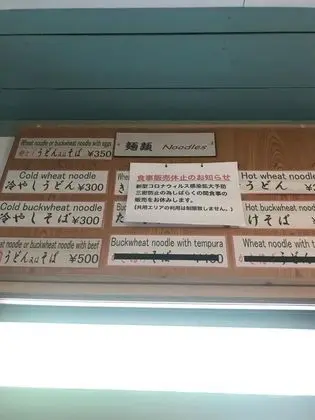 Wheat noodle or buckwheat noodle with eggs
うどん又はそば ¥350
麺類 Noodles
食事販売休止のお知らせ
新型コロナウィルス感染拡大予防
三密防止の為しばらくの間食事の
販売をお休みします。
(共用エリアの利用は制限致しません。)
Cold wheat noodle
冷やしうどん ¥300
Hot wheat noodle
うどん ¥3
Cold buckwheat noodle
冷やしそば ¥300
Hot buckwheat nood
けそば ¥
at noodle or buckwheat noodle with beef
うどん又はそば ¥500
Buckwheat noodle with tempura
Wheat noodle with t